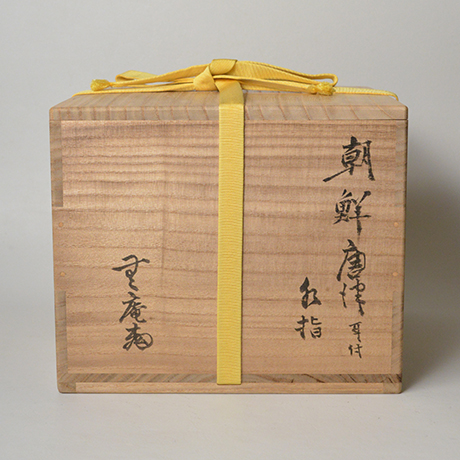 朝鮮唐津 耳付
水指
無庵